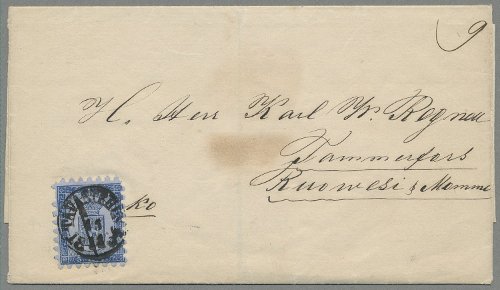 9
H. Herr Karl W. Regnell
Tammerfors
Ruowesi & Mommi
ko